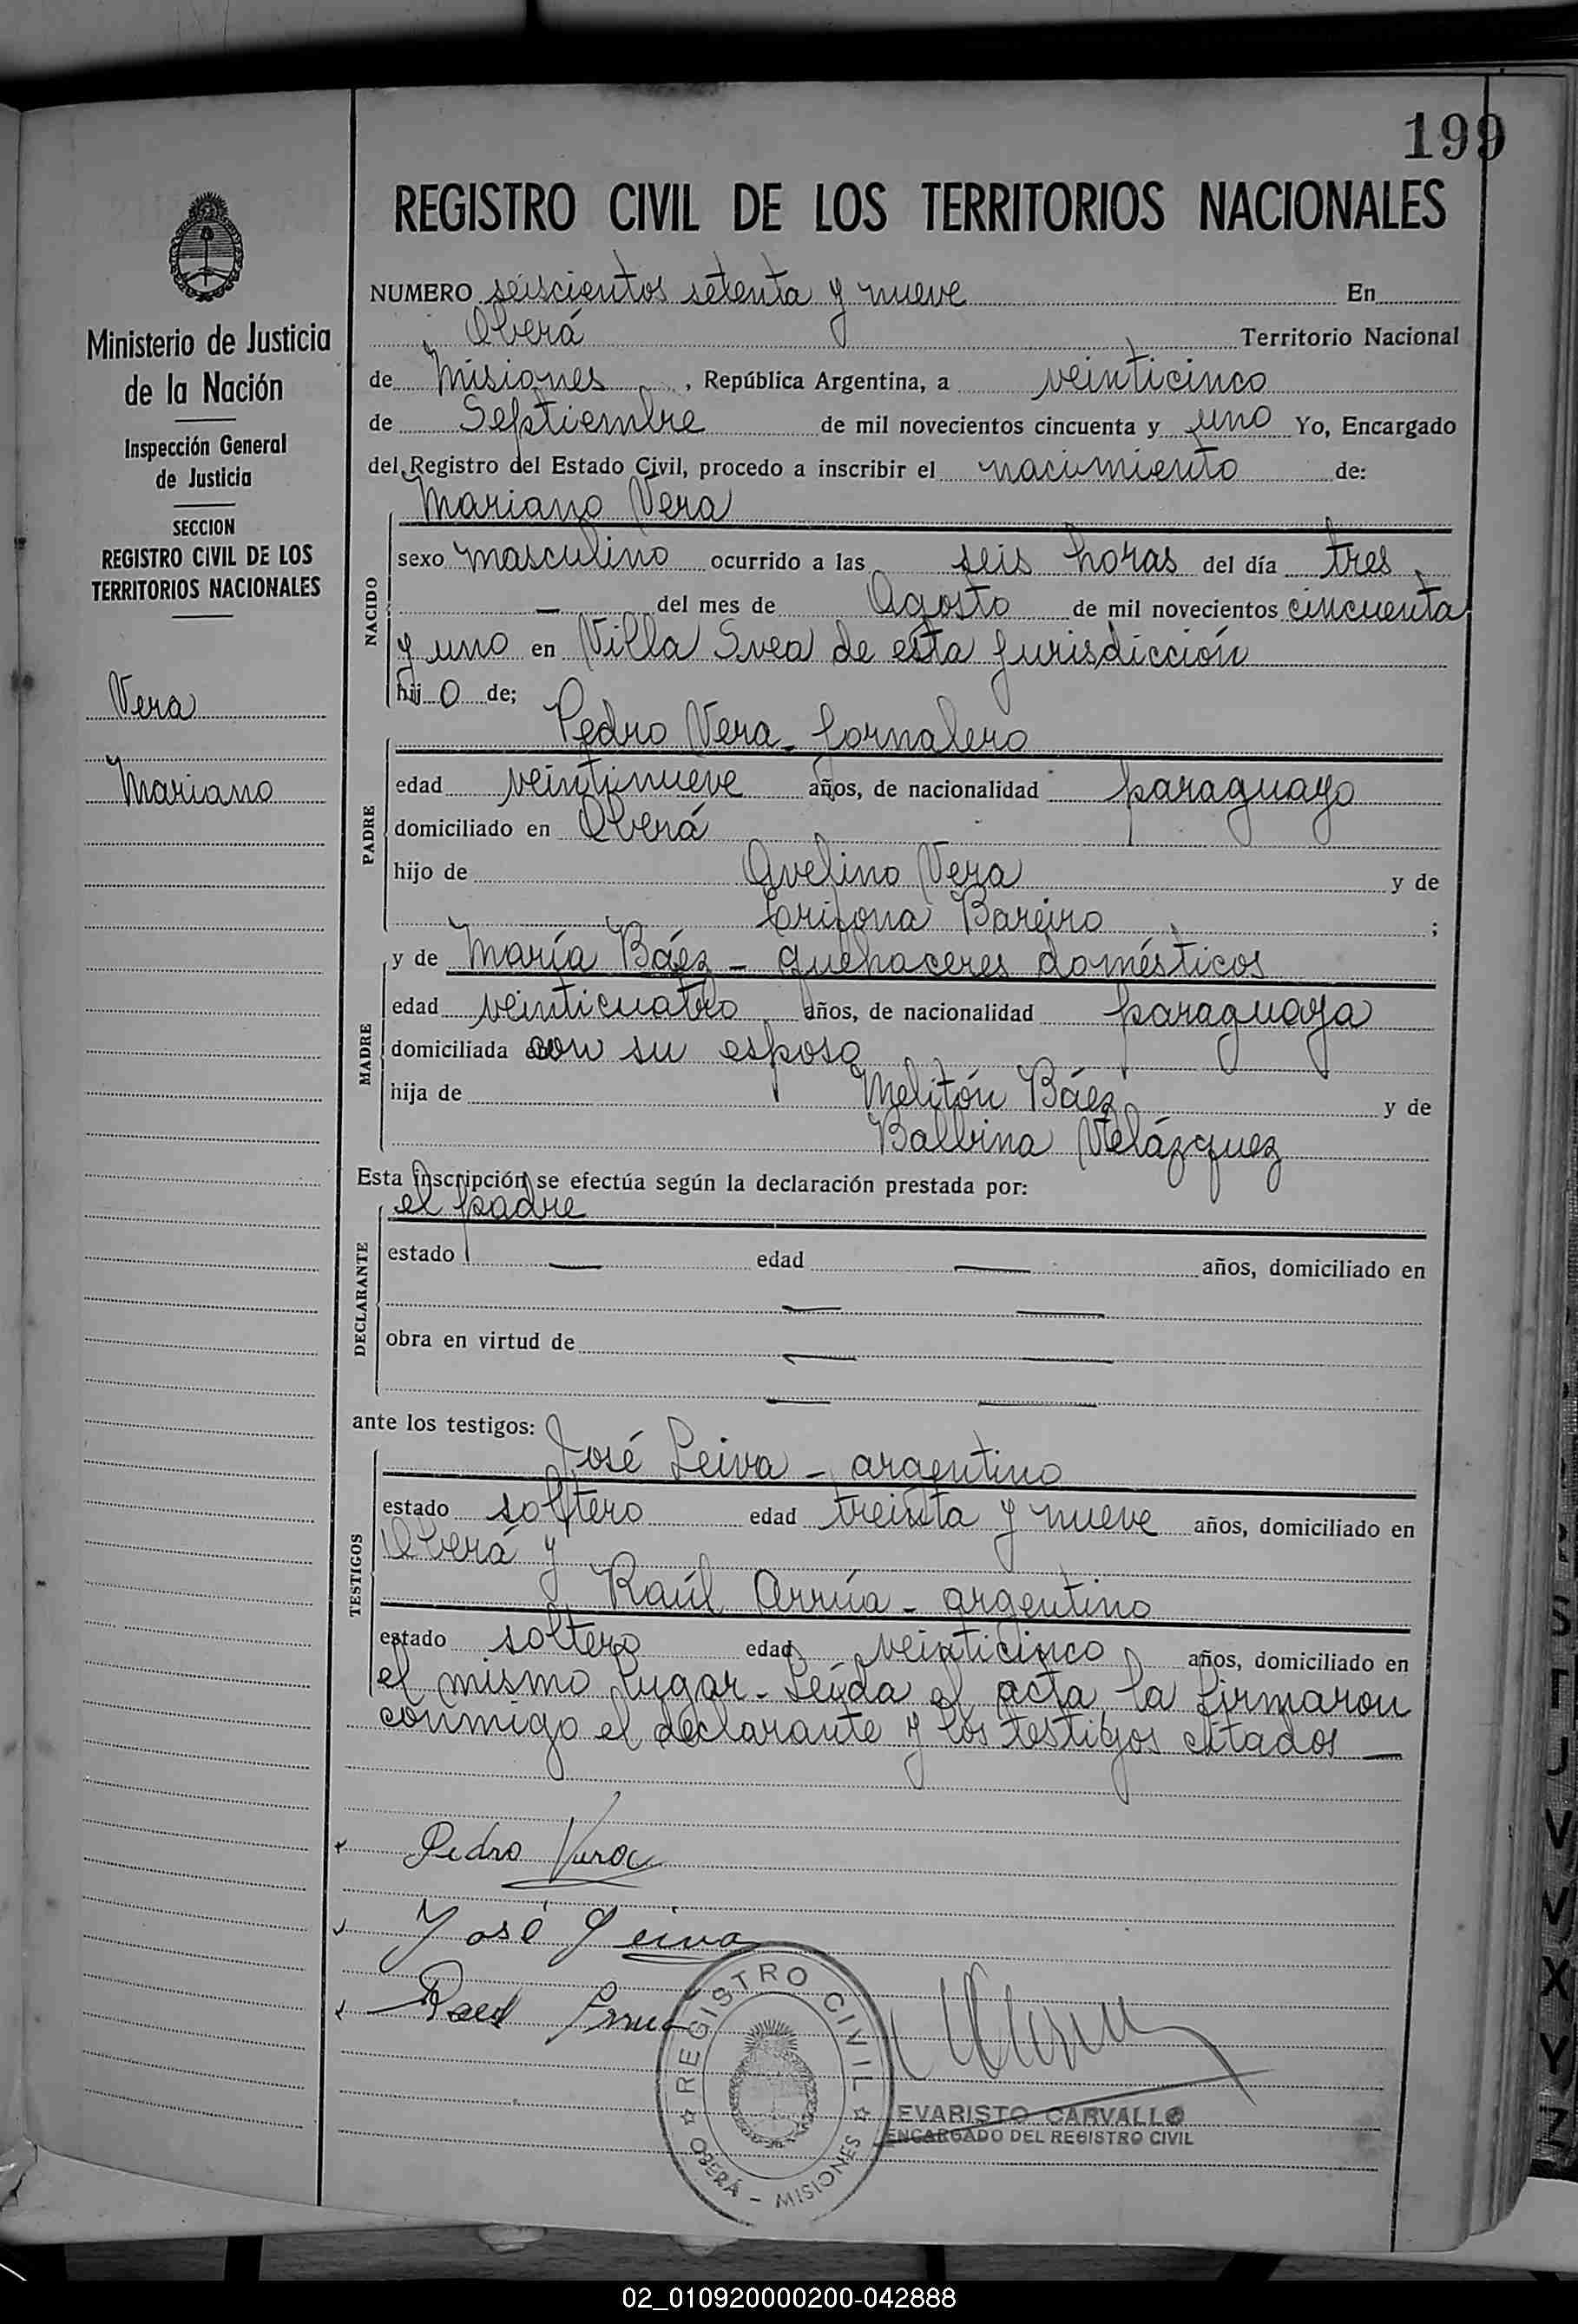 199
REGISTRO CIVIL DE LOS TERRITORIOS NACIONALES
Ministerio de Justicia
de la Nación
Inspección General
de Justicia
SECCION
REGISTRO CIVIL DE LOS
TERRITORIOS NACIONALES
Vera
Mariano
NUMERO seiscientos setenta y nueve En
Oberá Territorio Nacional
de Misiones, República Argentina, a veinticinco
de Septiembre de mil novecientos cincuenta y uno Yo, Encargado
del Registro del Estado Civil, procedo a inscribir el nacimiento de:
Mariano Vera
NACIDO
sexo masculino ocurrido a las seis horas del día tres
— del mes de Agosto de mil novecientos cincuenta
y uno en Villa Svea de esta jurisdicción
hijo de;
Pedro Vera - Jornalero
PADRE
edad veintinueve años, de nacionalidad paraguayo
domiciliado en Oberá
hijo de Avelino Vera y de
Bareiro ;
y de María Báez - quehaceres domésticos
MADRE
edad veinticuatro años, de nacionalidad paraguaya
domiciliada con su esposo
hija de Melitón Báez y de
Balbina Velázquez
Esta inscripción se efectúa según la declaración prestada por:
el padre
DECLARANTE
estado — edad — años, domiciliado en
— —
obra en virtud de — —
— —
ante los testigos:
José Leiva - argentino
TESTIGOS
estado soltero edad treinta y nueve años, domiciliado en
Oberá y
Raúl Arrúa - argentino
estado soltero edad veinticinco años, domiciliado en
el mismo lugar - Leída el acta la firmaron
conmigo el declarante y los testigos citados —
Pedro Vera
José Leiva
REGISTRO CIVIL
OBERÁ - MISIONES
EVARISTO CARVALLO
ENCARGADO DEL REGISTRO CIVIL
S
T
U
V
V
X
Y
Z
02_010920000200-042888